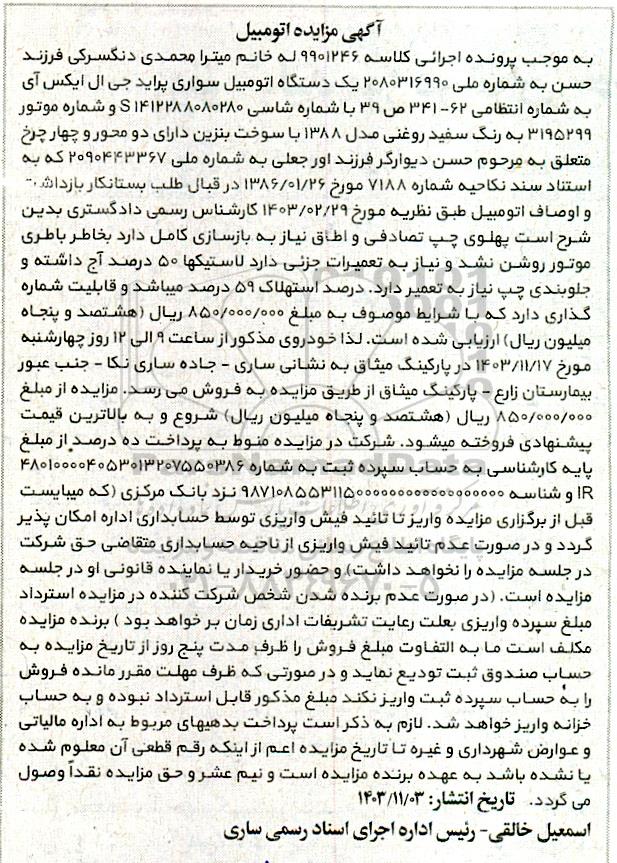 آگهی مزایده اتومبیل
به موجب پرونده اجرائی کلاسه ۹۹۰۱۲۴۶ له خانم میترا محمدی دنگسرکی فرزند
حسن به شماره ملی ۲۰۸۰۳۱۶۹۹۰ یک دستگاه اتومبیل سواری پراید جی ال ایکس آی
به شماره انتظامی ۶۲- ۳۴۱ ص ۳۹ با شماره شاسی S ۱۴۱۲۲۸۸۰۸۰۲۸۰ و شماره موتور
۳۱۹۵۲۹۹ به رنگ سفید روغنی مدل ۱۳۸۸ با سوخت بنزین دارای دو محور و چهار چرخ
متعلق به مرحوم حسن دیوارگر فرزند اور جعلی به شماره ملی ۲۰۹۰۴۴۳۳۶۷ که به
استناد سند نکاحیه شماره ۷۱۸۸ مورخ ۱۳۸۶/۰۱/۲۶ در قبال طلب بستانکار بازداشت
و اوصاف اتومبیل طبق نظریه مورخ ۱۴۰۳/۰۲/۲۹ کارشناس رسمی دادگستری بدین
شرح است پهلوی چپ تصادفی و اطاق نیاز به بازسازی کامل دارد بخاطر باطری
موتور روشن نشد و نیاز به تعمیرات جزئی دارد لاستیکها ۵۰ درصد آج داشته و
جلوبندی چپ نیاز به تعمیر دارد. درصد استهلاک ۵۹ درصد میباشد و قابلیت شماره
گذاری دارد که با شرایط موصوف به مبلغ ۸۵۰/۰۰۰/۰۰۰ ریال (هشتصد و پنجاه
میلیون ریال) ارزیابی شده است. لذا خودروی مذکور از ساعت ۹ الی ۱۲ روز چهارشنبه
مورخ ۱۴۰۳/۱۱/۱۷ در پارکینگ میثاق به نشانی ساری - جاده ساری نکا - جنب عبور
بیمارستان زارع - پارکینگ میثاق از طریق مزایده به فروش می رسد. مزایده از مبلغ
۸۵۰/۰۰۰/۰۰۰ ریال (هشتصد و پنجاه میلیون ریال) شروع و به بالاترین قیمت
پیشنهادی فروخته میشود. شرکت در مزایده منوط به پرداخت ده درصد از مبلغ
پایه کارشناسی به حساب سپرده ثبت به شماره ۴۸۰۱۰۰۰۰۴۰۵۳۰۱۳۲۰۷۵۵۰۳۸۶
IR و شناسه ۹۸۷۱۰۸۵۵۳۱۱۵۰۰۰۰۰۰۰۰۰۰۰۰۰۰۰۰۰۰ نزد بانک مرکزی (که میبایست
قبل از برگزاری مزایده واریز تا تائید فیش واریزی توسط حسابداری اداره امکان پذیر
گردد و در صورت عدم تائید فیش واریزی از ناحیه حسابداری متقاضی حق شرکت
در جلسه مزایده را نخواهد داشت) و حضور خریدار یا نماینده قانونی او در جلسه
مزایده است. (در صورت عدم برنده شدن شخص شرکت کننده در مزایده استرداد
مبلغ سپرده واریزی بعلت رعایت تشریفات اداری زمان بر خواهد بود ) برنده مزایده
مکلف است ما به التفاوت مبلغ فروش را ظرف مدت پنج روز از تاریخ مزایده به
حساب صندوق ثبت تودیع نماید و در صورتی که ظرف مهلت مقرر مانده فروش
را به حساب سپرده ثبت واریز نکند مبلغ مذکور قابل استرداد نبوده و به حساب
خزانه واریز خواهد شد. لازم به ذکر است پرداخت بدهیهای مربوط به اداره مالیاتی
و عوارض شهرداری و غیره تا تاریخ مزایده اعم از اینکه رقم قطعی آن معلوم شده
یا نشده باشد به عهده برنده مزایده است و نیم عشر و حق مزایده نقداً وصول
می گردد. تاریخ انتشار: ۱۴۰۳/۱۱/۰۳
اسمعیل خالقی- رئیس اداره اجرای اسناد رسمی ساری